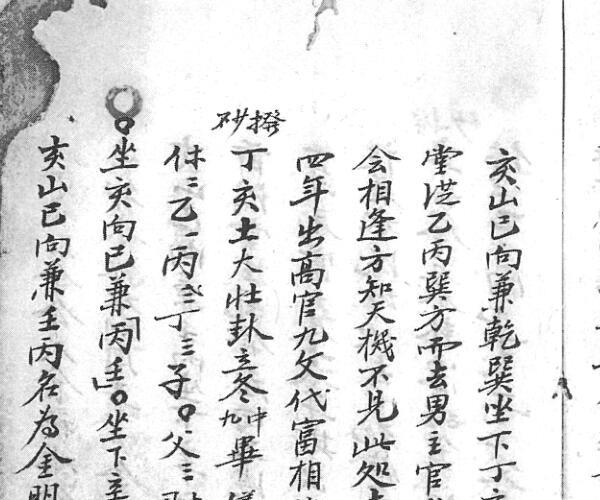 亥山巳向兼乾巽坐下丁亥
堂从乙丙巽方而去男主官
会相逢方知天機不見此处
四年出高官九文代富相
撥砂
丁亥土大壮卦立冬中九畢
休三乙一丙三丁三子〇父三
〇坐亥向巳兼丙壬〇坐下辛
亥山巳向兼壬丙名為金明